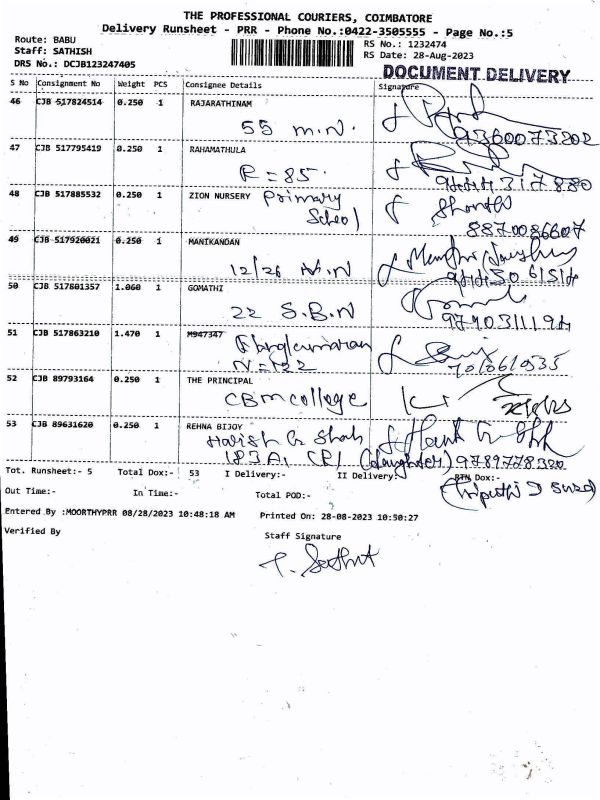 THE PROFESSIONAL COURIERS, COIMBATORE
Delivery Runsheet - PRR - Phone No.:0422-3505555 - Page No.:5
Route: BABU
Staff: SATHISH
DRS No.: DCJB123247405
RS No.: 1232474
RS Date: 28-Aug-2023
DOCUMENT DELIVERY
S No Consignment No Weight PCS Consignee Details Signature
46 CJB 517824514 0.250 1 RAJARATHINAM
55 M.N.
9360073202
47 CJB 517795419 0.250 1 RAHAMATHULA
R = 85.
48 CJB 517885532 0.250 1 ZION NURSERY Primary
School
Shanthi
8870086607
49 CJB 517920021 0.250 1 MANIKANDAN
12/26 N.N
50 CJB 517801357 1.060 1 GOMATHI
22 S.B.N
51 CJB 517863210 1.470 1 M947347
N = 122
52 CJB 89793164 0.250 1 THE PRINCIPAL
CBM college
53 CJB 89631620 0.250 1 REHNA BIJOY
Harish G Shah
183A, CPI (Laughter) 9789778320
Tot. Runsheet:- 5 Total Dox:- 53 I Delivery:- II Delivery:- RTN Dox:-
Out Time:- In Time:- Total POD:-
Entered By :MOORTHYPRR 08/28/2023 10:48:18 AM Printed On: 28-08-2023 10:50:27
Verified By Staff Signature